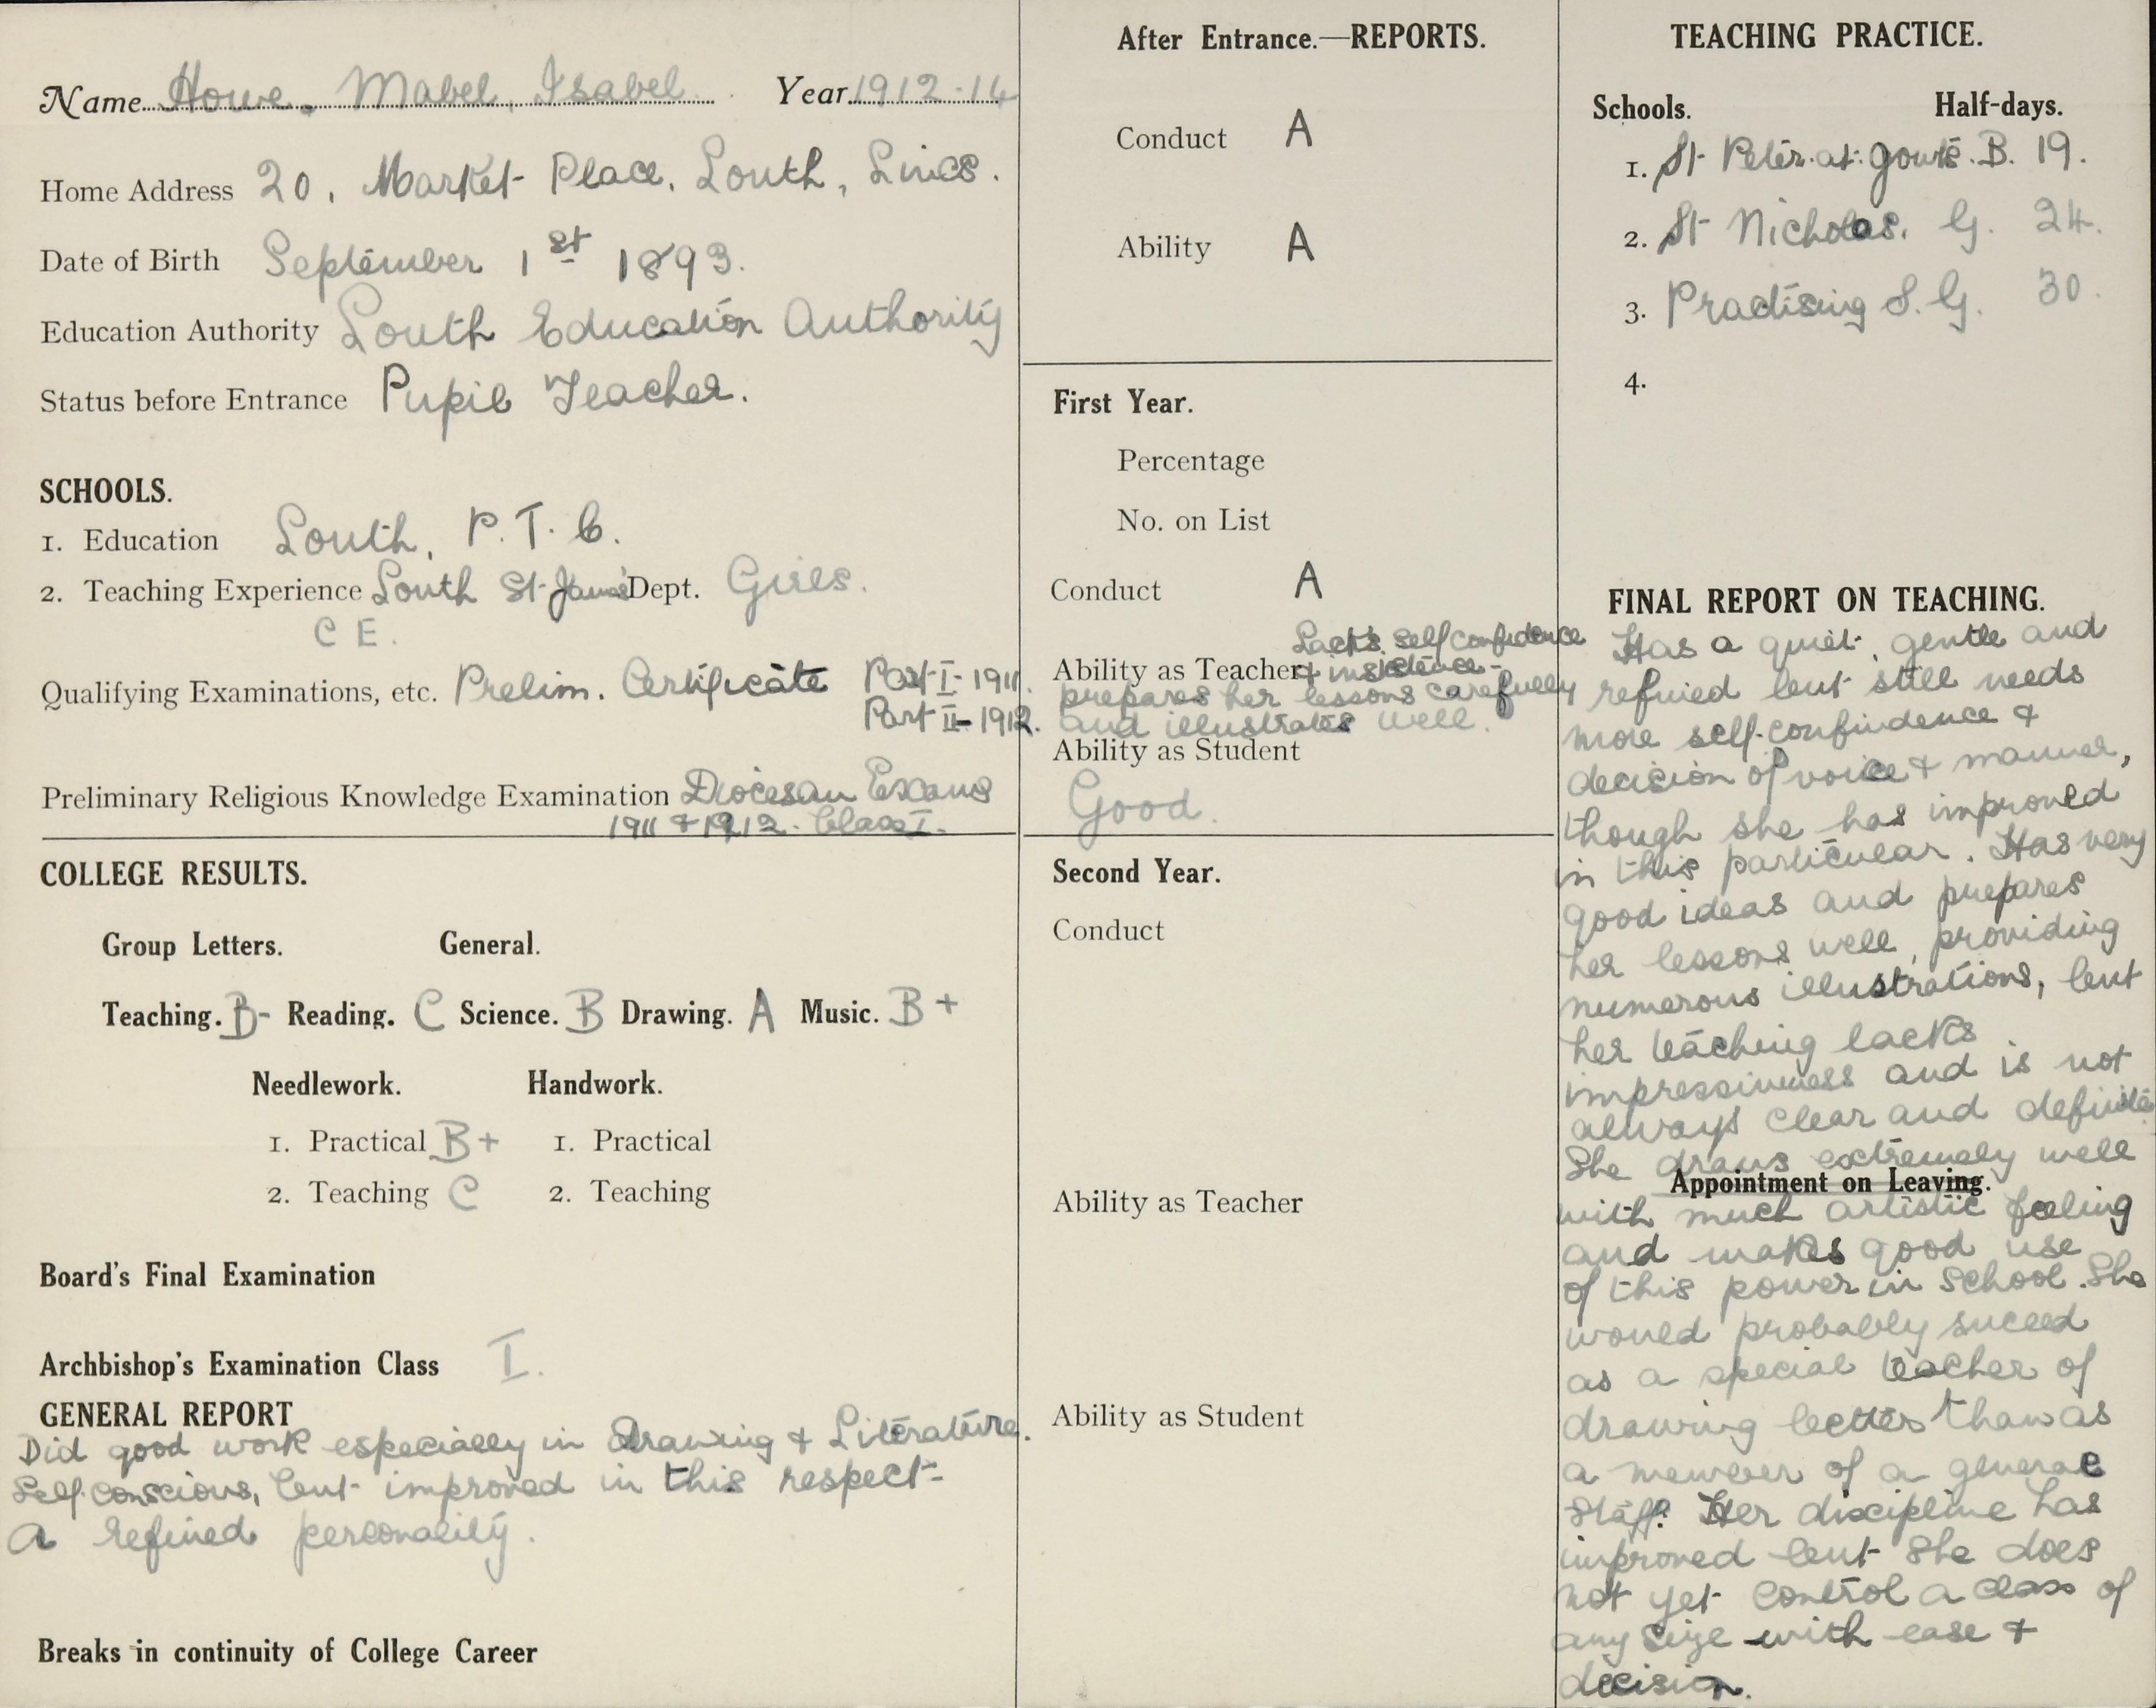 Name Howe, Mabel, Isabel Year 1912-14
Home Address 20, Market Place, Louth, Lincs.
Date of Birth September 1st 1893.
Education Authority Louth Education Authority
Status before Entrance Pupil Teacher.
SCHOOLS.
1. Education Louth, P.T.C.
2. Teaching Experience Louth St James Dept. Girls.
C E.
Qualifying Examinations, etc. Prelim. Certificate Part I - 1911.
Part II - 1912.
Preliminary Religious Knowledge Examination Diocesan Exams
1911 & 1912. Class I.
COLLEGE RESULTS.
Group Letters. General.
Teaching. B- Reading. C Science. B Drawing. A Music. B+
Needlework. Handwork.
1. Practical B+ 1. Practical
2. Teaching C 2. Teaching
Board's Final Examination
Archbishop's Examination Class I.
GENERAL REPORT
Did good work especially in Drawing & Literature.
Self-conscious, but improved in this respect-
A refined personality.
Breaks in continuity of College Career
After Entrance.—REPORTS.
Conduct A
Ability A
First Year.
Percentage
No. on List
Conduct A
Lacks self confidence
Ability as Teacher & insistence -
prepares her lessons carefully
and illustrates well.
Ability as Student
Good.
Second Year.
Conduct
Ability as Teacher
Ability as Student
TEACHING PRACTICE.
Schools. Half-days.
1. St Peter-at-Gowts. B. 19.
2. St Nicholas. G. 24.
3. Practising S. G. 30.
4.
FINAL REPORT ON TEACHING.
Has a quiet, gentle and
refined but still needs
more self-confindence &
decision of voice & manner,
though she has improved
in this particular. Has very
good ideas and prepares
her lessons well, providing
numerous illustrations, but
her teaching lacks
impressiveness and is not
always clear and definite.
She draws extremely well
Appointment on Leaving.
with much artistic feeling
and makes good use
of this power in school. She
would probably suceed
as a special teacher of
drawing better than as
a member of a general
staff. Her discipline has
improved but she does
not yet control a class of
any size with ease &
decision.